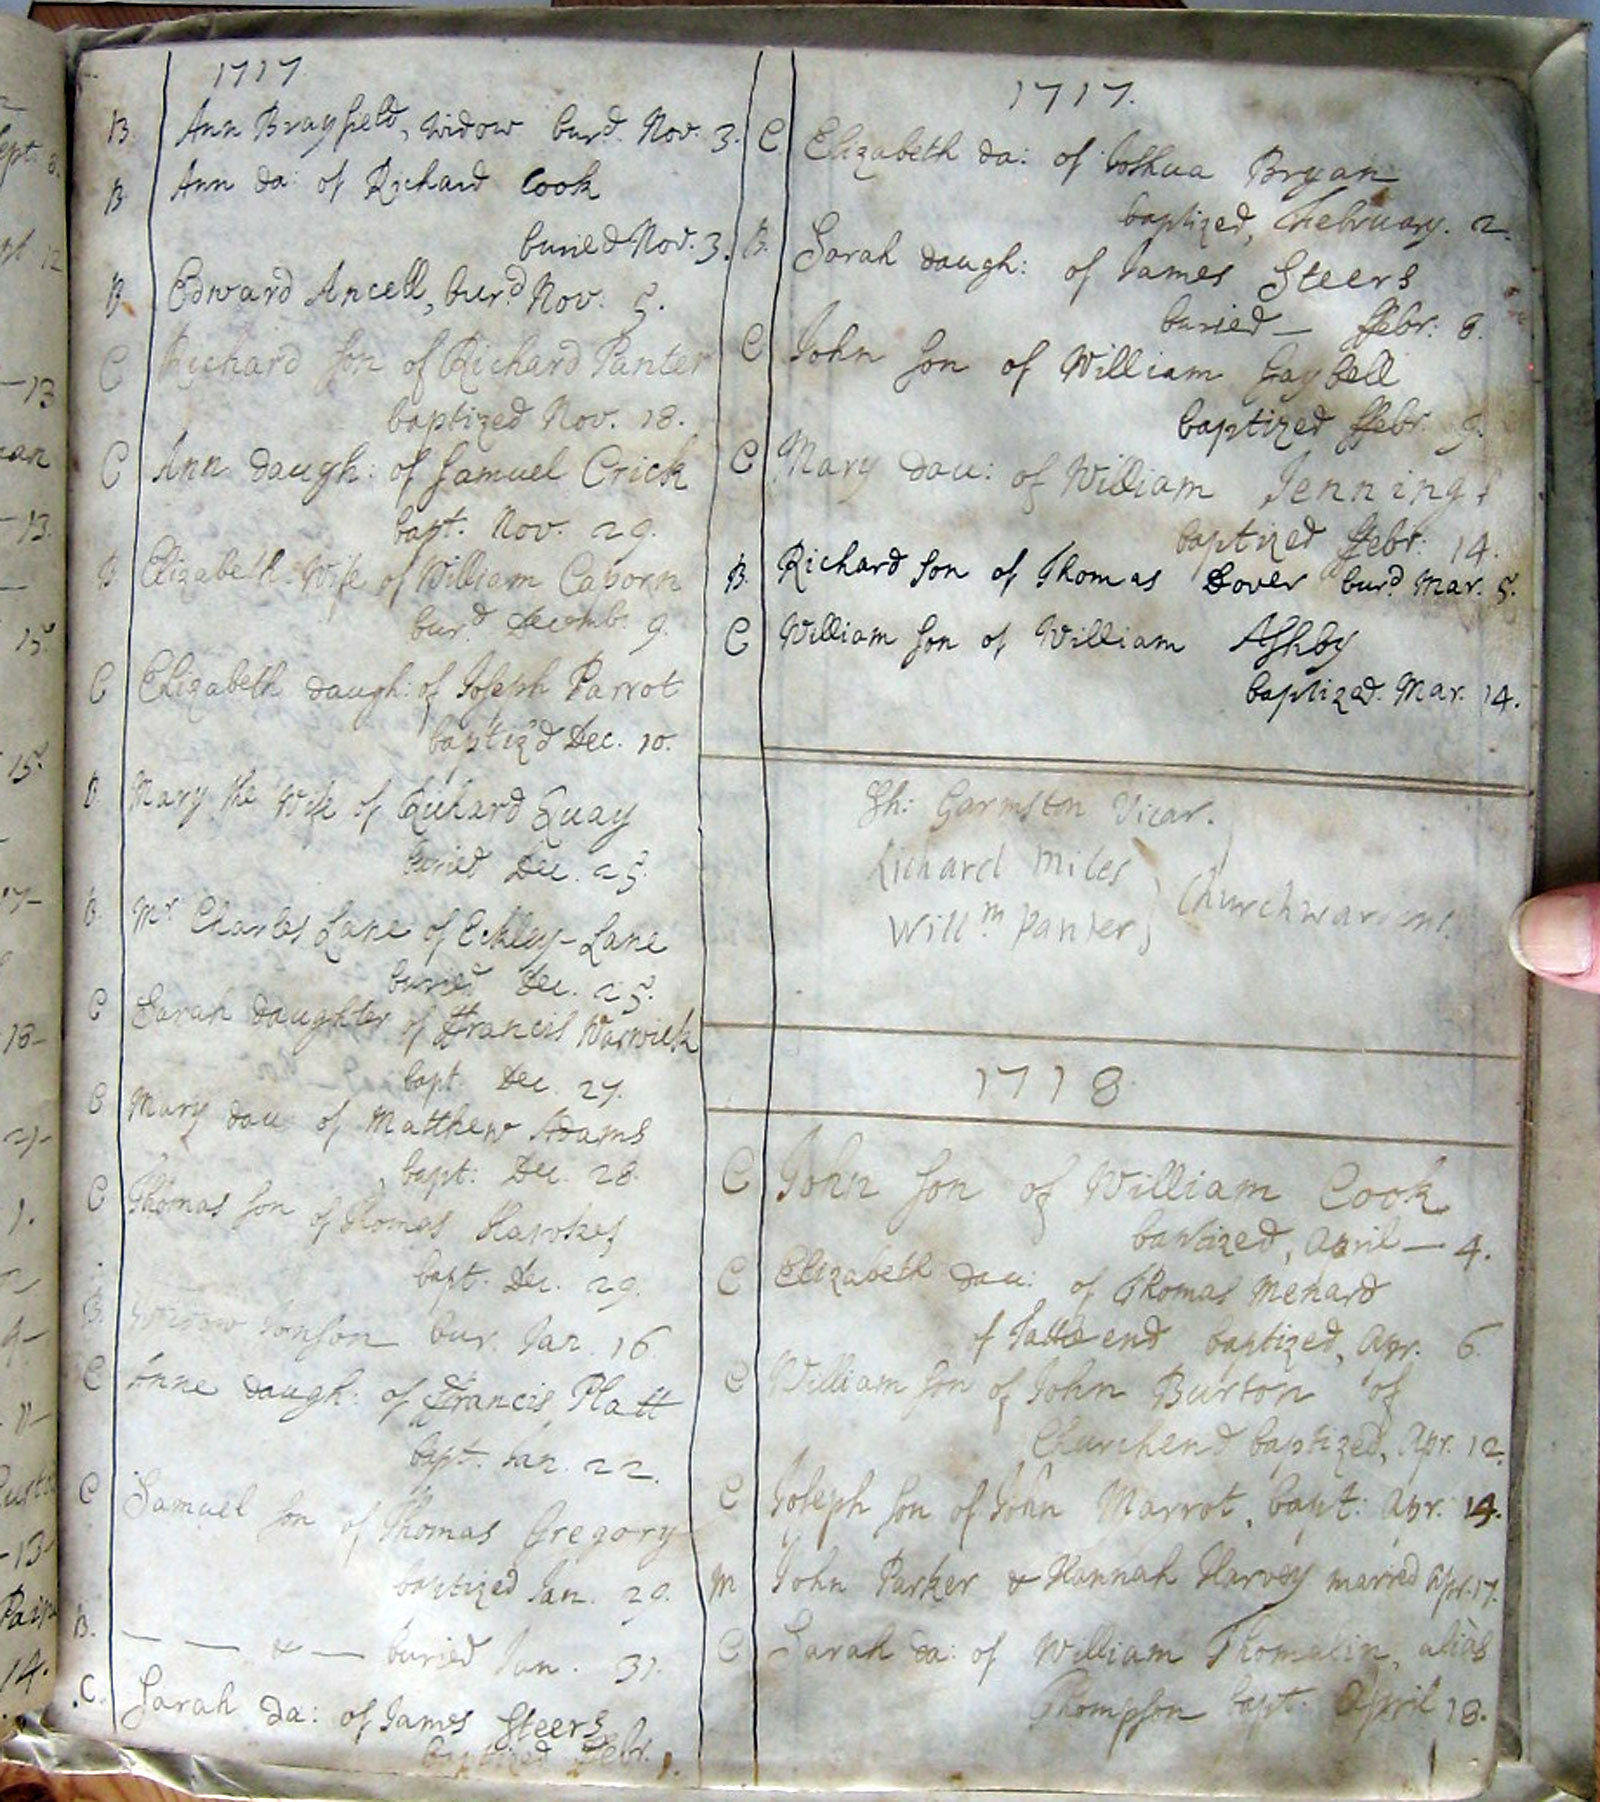 1717
B Ann Brayfield, widow burd. Nov. 3.
B Ann da: of Richard Cook
buried Nov. 3.
B Edward Ancell, burd Nov. 5.
C Richard son of Richard Panter
baptized Nov. 18.
C Ann daugh: of Samuel Crick
bapt. Nov. 29.
B Elizabeth Wife of William Caporn
burd. Decemb. 9.
C Elizabeth daugh: of Joseph Parrot
baptiz'd Dec. 10.
B Mary the Wife of Richard Quay
buried Dec. 25.
B. Mr Charles Lane of Eckley-Lane
buried Dec. 25.
C Sarah daughter of Francis Warwick
bapt. Dec. 27.
C Mary dau of Matthew Adams
bapt: Dec. 28.
C Thomas son of Thomas Hawkes
bapt. Dec. 29.
B. Widow Jonson bur. Jan. 16
C Anne daugh: of Francis Platt
bapt. Jan. 22.
C Samuel son of Thomas Gregory
baptized Jan. 29.
B. — — & — buried Jan. 31.
.C. Sarah da: of James Steers
baptized Febr. 1.
1717.
C. Elizabeth da: of Joshua Bryan
baptized, February. 2.
B. Sarah daugh: of James Steers
buried — ffebr: 8.
C John son of William Gaybell
baptized ffebr. 9.
C Mary dau: of William Jennings
baptized ffebr: 14.
B. Richard son of Thomas Dover burd Mar. 5.
C William son of William Ashby
baptized. Mar. 14.
Garmston Vicar.
Richard Miles
Willm Panter } Churchwardens.
1718
C John son of William Cook
baptized, April — 4.
C Elizabeth dau: of Thomas Menard
of end baptized, Apr. 6
C William son of John Burton of
Churchend baptized, Apr. 12.
C Joseph son of John Marrot, bapt: Apr. 14.
M John Parker & Hannah Harvey married Apr. 17.
C Sarah da: of William Thomalin, alias
Thompson bapt. April 18.